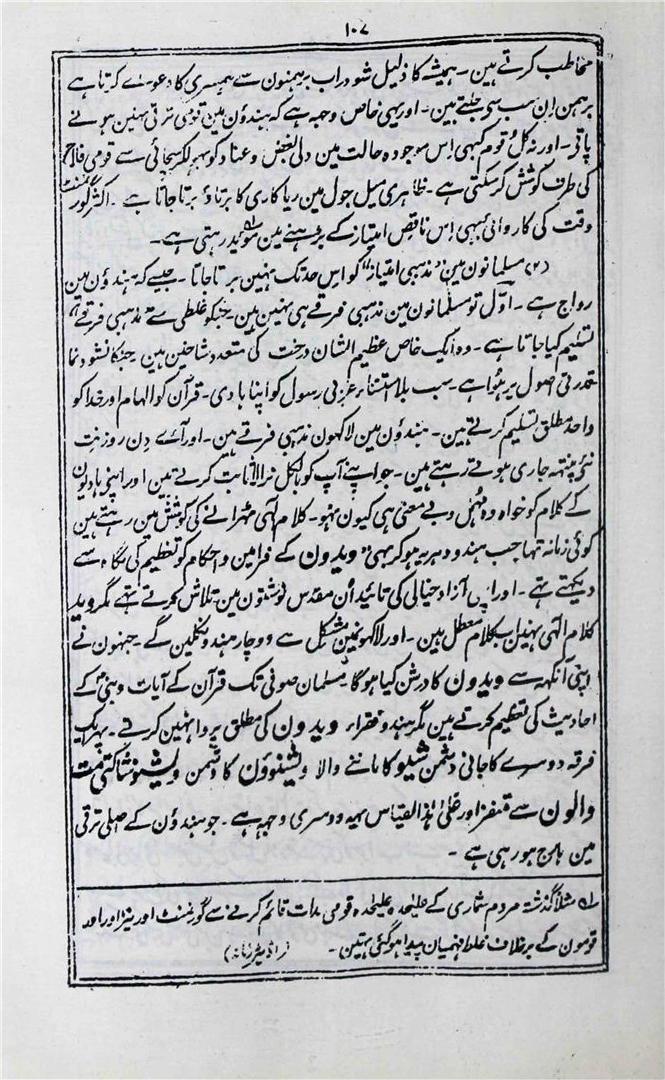 ۱۰۷
مخاطب کرتے ہین ۔ ہمیشہ کا ذلیل شودر اب برہمنون سے ہمسری کا دعوے کرتا ہے
برہمن ان سب سے جلتے ہین ۔ اور یہی خاص وجہ ہے کہ ہندؤن مین قومی ترقی نہین ہونے
پاتی ۔ اور نہ کل قوم کبھی اس موجودہ حالت مین دلی بغض و عناد کو بھولکر سچائی سے قومی فلاح
کی طرف کوشش کرسکتی ہے ۔ ظاہری میل جول مین ریاکاری کا برتاؤ برتا جاتا ہے ۔ اکثر گورنمنٹ
وقت کی کاروائی بھی اس ناقص امتیاز کے بڑہنے مین موئید رہتی ہے ۔
(۲) مسلمانون مین ”مذہبی امتیاز“ کو اس حد تک نہین برتا جاتا ۔ جیسے کہ ہندؤن مین
رواج ہے ۔ اول تو مسلمانون مین مذہبی فرقے ہی نہین ہین ۔ جنکو غلطی سے مذہبی فرقے
تسلیم کیا جاتا ہے ۔ وہ ایک خاص عظیم الشان درخت کی متعدد شاخین ہین ۔ جنکا نشوونما
قدرتی اصول پر ہوا ہے ۔ سب بلا استثناء عربی رسول کو اپنا ہادی ۔ قرآن کو الہام اور خدا کو
واحد مطلق تسلیم کرتے ہین ۔ ہندؤن مین لاکھون مذہبی فرقے ہین ۔ اور آئے دن روز نت
نئے پنتھ جاری ہوتے رہتے ہین ۔ جو اپنے آپ کو بالکل نرالا ثابت کرتے ہین اور اپنے ہادیون
کے کلام کو خواہ وہ مہمل و بے معنی ہی کیون نہو ۔ کلام الٰہی ٹہرانے کی کوشش مین رہتے ہین
کوئی زمانہ تھا جب ہندو دہریہ ہوکر بھی ویدون کے فرامین و احکام کو تعظیم کی نگاہ سے
دیکھتے تھے ۔ اور اپنی آزاد خیالی کی تائید ان مقدس نوشتون مین تلاش کرتے تھے مگر وید
کلام الٰہی نہین بلکہ کلام معطل ہین ۔ اور لاکھونمین مشکل سے دوچار ہندو نکلین گے ۔ جنہون نے
اپنی آنکھ سے ویدون کا درشن کیا ہوگا ۔ مسلمان صوفی تک قرآن کے آیات و نبی کے
احادیث کی تعظیم کرتے ہین مگر ہندو فقراء ویدون کی مطلق پروا نہین کرتے ۔ پھر ایک
فرقہ دوسرے کا جانی دشمن شیو کا ماننے والا ویشنوؤن کا دشمن ویشنو شاکت مت
والون سے متنفر اور علیٰ ہذا القیاس یہہ دوسری وجہ ہے ۔ جو ہندؤن کے اصلی ترقی
مین ہارج ہو رہی ہے ۔
۱؎ مثلاً گذشتہ مردم شماری کے علیحدہ علیحدہ قومی مدات قائم کرنے سے گورنمنٹ اور نیز اور اور
قومون کے برخلاف غلط فہمیان پیدا ہوگئی تہین ۔ (اڈیٹر زمانہ)